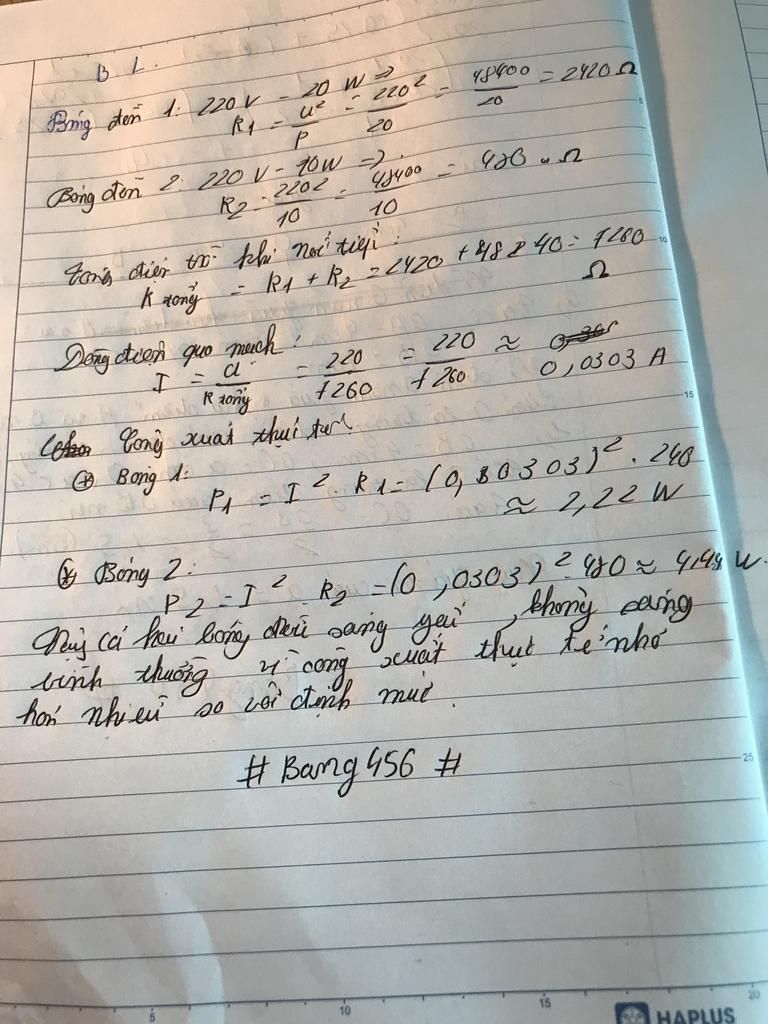 B L.
Bóng đèn 1: 220 V - 20 W =>
R1 = U²/P = 220²/20 = 48400/20 = 2420 Ω
Bóng đèn 2: 220 V - 10W =>
R2 = 220²/10 = 48400/10 = 480 Ω
điện trở khi nối tiếp:
R tổng = R1 + R2 = 2420 + 4840 = 7260 Ω
Dòng điện qua mạch:
I = U/R tổng = 220/7260 = 220/7260 ≈ 0,0303 A
Công xuất thực tế:
⊕ Bóng 1:
P1 = I² R1 = (0,0303)² . 240
≈ 2,22 W
⊕ Bóng 2:
P2 = I² . R2 = (0,0303)² . 480 ≈ 4,44 W.
cả hai bóng đều sáng yếu, không sáng
bình thường vì công xuất thực tế nhỏ
hơn nhiều so với định mức.
# Bang456 #
5 10 15 20
5
10
15
25
HAPLUS